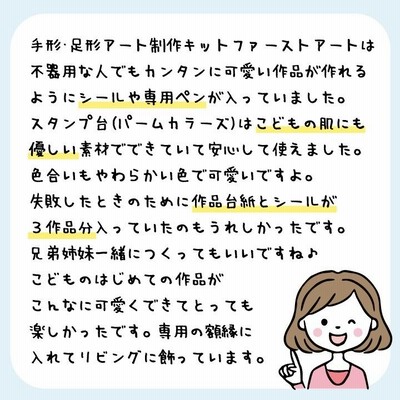 手形・足形アート制作キットファーストアートは
不器用な人でもカンタンに可愛い作品が作れる
ようにシールや専用ペンが入っていました。
スタンプ台(パームカラーズ)はこどもの肌にも
優しい素材でできていて安心して使えました。
色合いもやわらかい色で可愛いですよ。
失敗したときのために作品台紙とシールが
3作品分入っていたのもうれしかったです。
兄弟姉妹一緒につくってもいいですね♪
こどものはじめての作品が
こんなに可愛くできてとっても
楽しかったです。専用の額縁に
入れてリビングに飾っています。